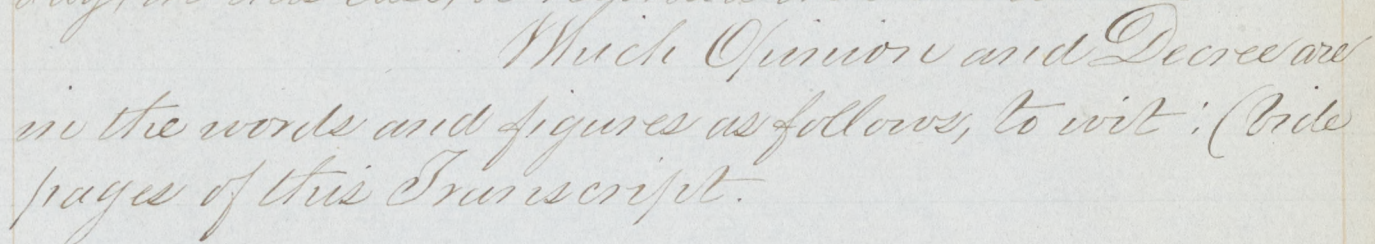 Which Opinion and Decree are
in the words and figures as follows, to wit: (vide
pages of this Transcript.